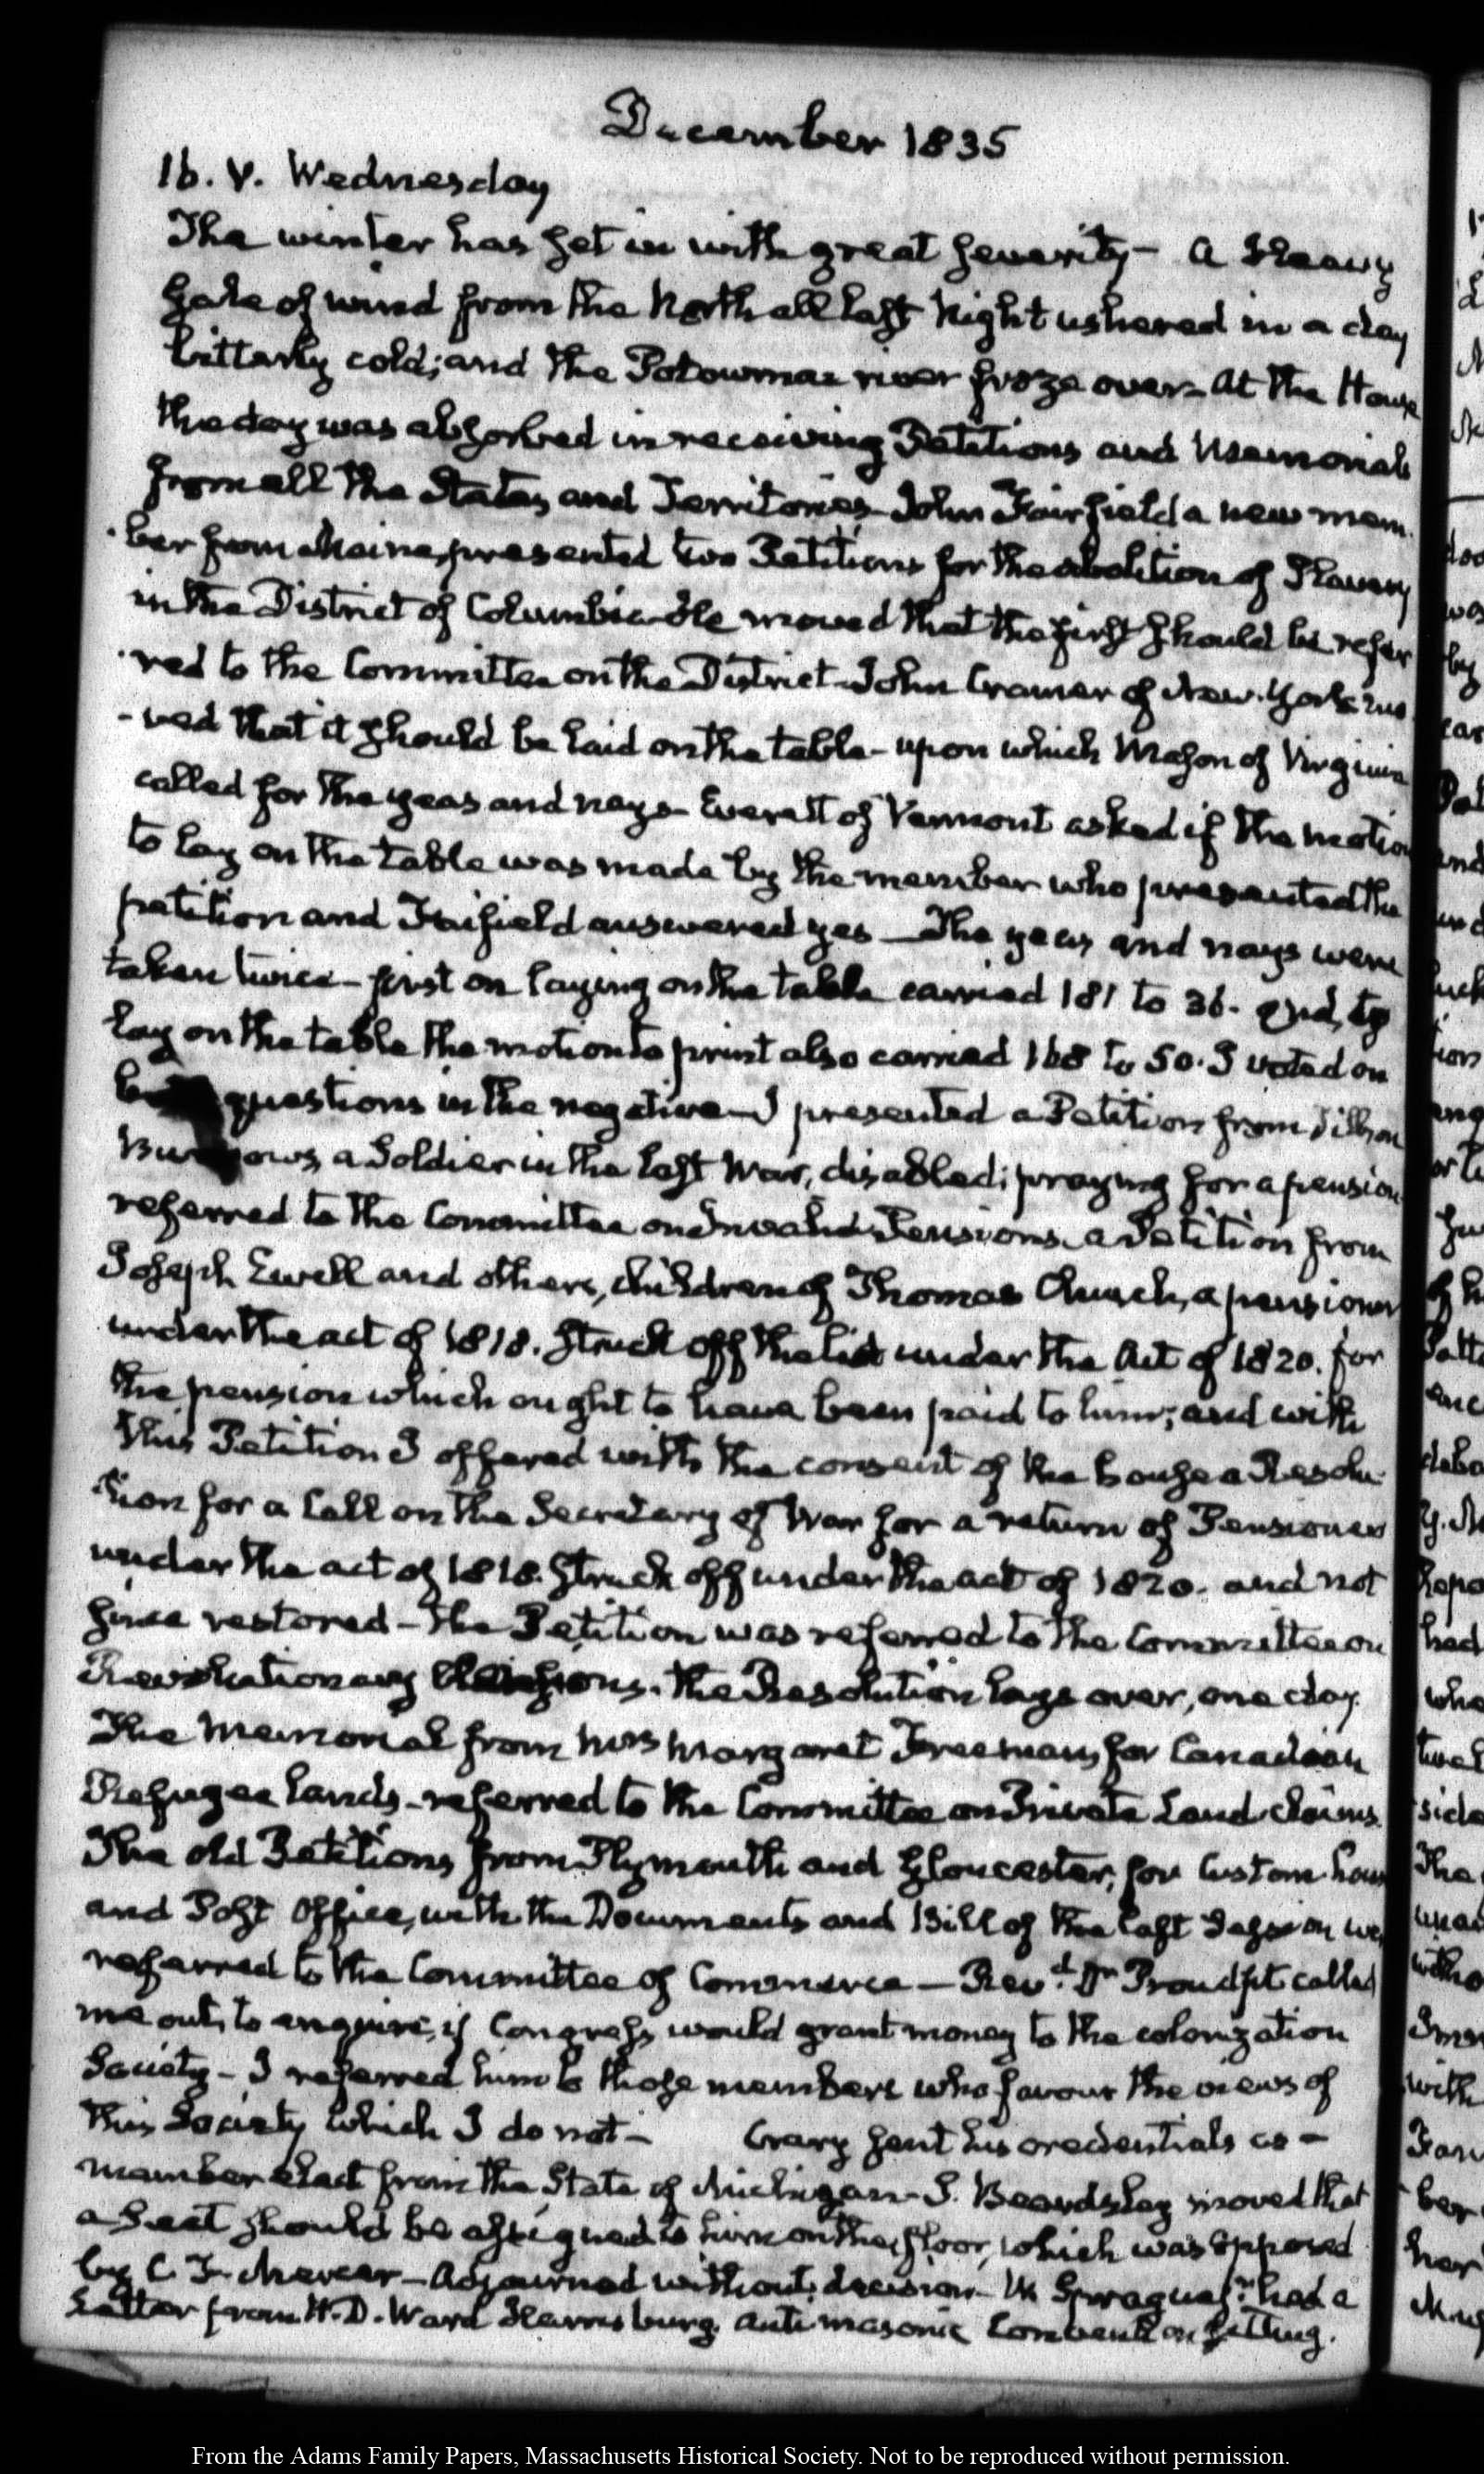 December 1835
16. V. Wednesday
The winter has set in with great severity — A heavy
Gale of wind from the North all last Night ushered in a day
bitterly cold; and the Potowmac river froze over — At the House
the day was absorbed in receiving Petitions and Memorials
from all the States and Territories — John Fairfield a new mem-
-ber from Maine, presented two Petitions for the abolition of Slavery
in the District of Columbia — He moved that the first should be refer
-red to the Committee on the District — John Cramer of New-York mo
-ved that it should be laid on the table — upon which Mason of Virginia
called for the yeas and nays — Everett of Vermont asked if the motion
to lay on the table was made by the member who presented the
petition and Fairfield answered yes — The yeas and nays were
taken twice — first on laying on the table carried 181 to 36. and, to
lay on the table the motion to print also carried 168 to 50. I voted on
questions in the negative — I presented a Petition from
a Soldier in the last War, disabled; praying for a pension
referred to the Committee on Invalid Pensions. a Petition from
Joseph Ewell and others, children of Thomas Church, a pensioner
under the act of 1818. struck off the list under the Act of 1820. for
the pension which ought to have been paid to him; and with
this Petition I offered with the consent of the house a Resolu-
-tion for a Call on the Secretary of War for a return of Pensioners
under the act of 1818. struck off under the act of 1820. and not
since restored — The Petition was referred to the Committee on
Revolutionary the Resolution lays over, one day.
The Memorial from Mrs Margaret Freeman, for Canadian
Refugee lands — referred to the Committee on Private Land claims.
The old Petitions from Plymouth and Gloucester, for Custom house
and Post Office, with the Documents and Bill of the last Session we
referred to the Committee of Commerce — Revd. Dr Proudfit called
me out, to enquire, if Congress would grant money to the colonization
Society — I referred him to those members who favour the views of
this Society which I do not — Crary sent his credentials as —
member elect from the State of Michigan — S. Beardsley moved that
a Seat should be assigned to him on the floor, which was opposed
by C. F. Mercer — Adjourned without decision — W. Sprague jr. had a
Letter from H. D. Ward Harrisburg. Antimasonic Convention sitting.
From the Adams Family Papers, Massachusetts Historical Society. Not to be reproduced without permission.